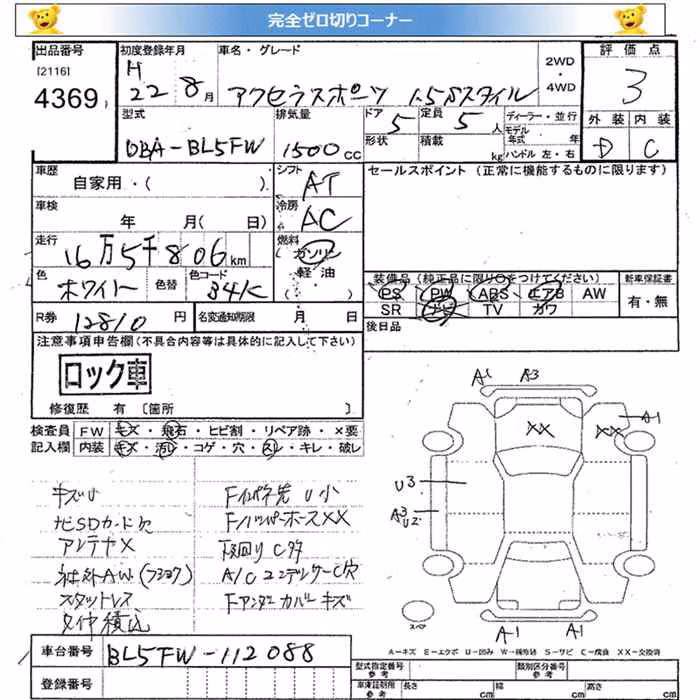 完全ゼロ切りコーナー
出品番号 初度登録年月 車名・グレード 2WD・4WD 評価点
[2116] H
4369 22 8月 アクセラスポーツ 1.5Sスタイル 3
型式 排気量 ドア 定員 ディーラー・並行 外装 内装
DBA-BL5FW 1500cc 5 5人 モデル年式 年 D C
形状 積載 kg ハンドル 左・右
車歴 シフト セールスポイント (正常に機能するものに限ります)
自家用・( ) AT
車検 冷房
年 月( 日) AC
走行 燃料
16万5千806km ガソリン
軽・油
( )
色 色替 色コード 装備品 (純正品に限り○をつけてください) 新車保証書
ホワイト 34K PS PW ABS エアB AW 有・無
SR ナビ TV カワ
R券 12810円 名変通知期限 月 日 後日品
注意事項申告欄(不具合内容等は具体的に記入して下さい)
ロック車
修復歴 有 [箇所 ]
検査員 FW キズ・飛石・ヒビ割・リペア跡・×要
記入欄 内装 キズ・汚レ・コゲ・穴・スレ・キレ・破レ
キズU
ナビSDカード欠
アンテナX
社外AW(フショク)
スタットレス
タイヤ積込
Fインパネ先U小
F/バンパーホースXX
下廻りCサビ
A/CコンデンサーC穴
Fアンダーカバーキズ
A1 A3
XX XX A1
U3
A3
U2
A1 A1
スペア
A−キズ E−エクボ U−凹み W−補修跡 S−サビ C−腐食 XX−交換済
車台番号 BL5FW-112088
登録番号
型式指定番号 参考 類別区分番号 参考
車庫証明用 参考 長さ cm 幅 cm 高さ cm